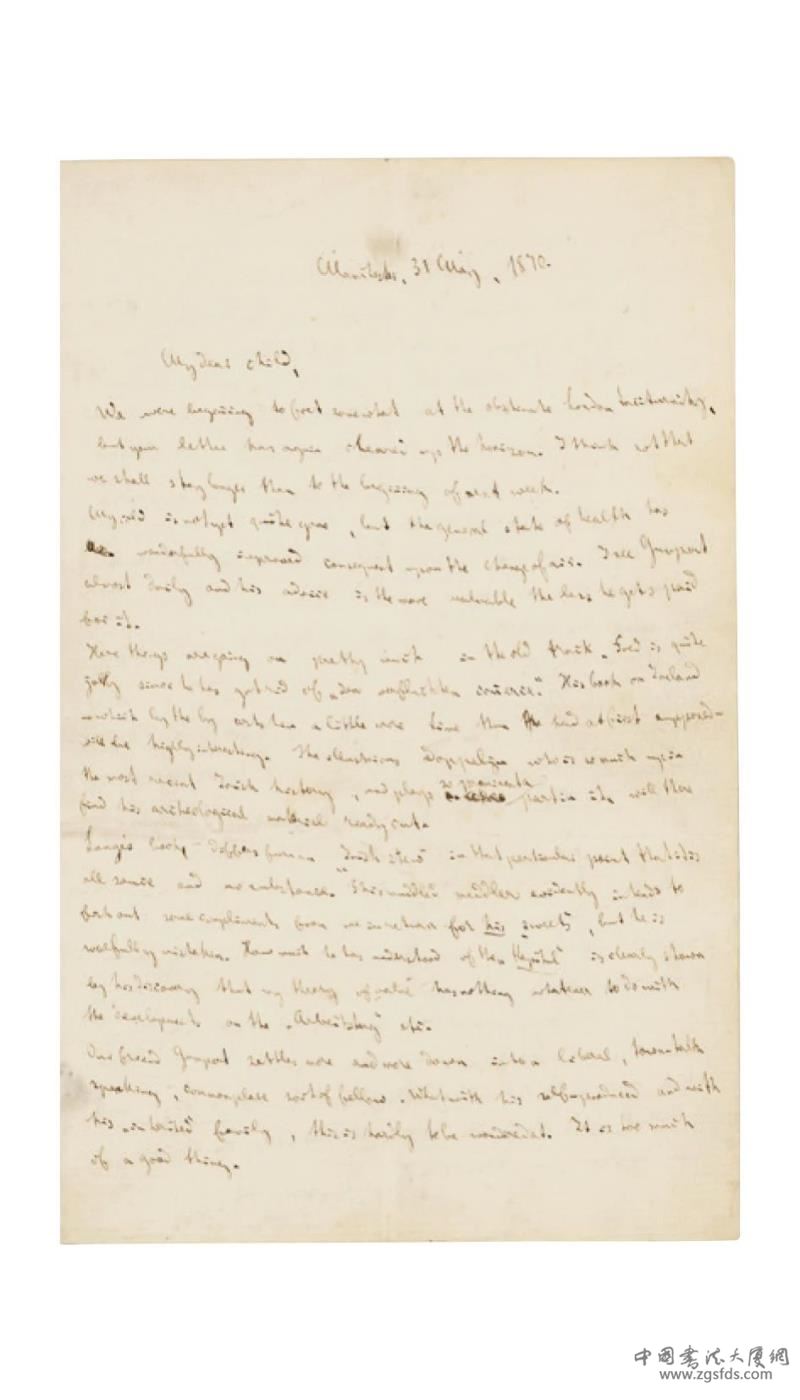 Manchester, 31 May, 1870.
My dear child,
We were beginning to fret somewhat at the obstinate London taciturnity,
but your letter has again cleared up the horizon. I think not that
we shall stay longer than to the beginning of next week.
My cold is not yet quite gone, but the general state of health has
wonderfully improved consequent upon the change of air. I see Gumpert
almost daily and his advice is the more valuable the less he gets paid
for it.
Here things are going on pretty much in the old track. Fred is quite
jolly since he has got rid of „den verfluchten commerce“. His book on Ireland
- which by the by costs him a little more time than he had at first supposed -
will be highly interesting. The illustrious Doppelju who is so much up in
the most recent Irish history, and plays so prominent a part in it, will there
find his archeological material ready cut.
Lange's book differs from an "Irish stew" in that particular point that it is
all sauce and no substance. This muddled meddler evidently intends to
fish out some compliments from me in return for his "sweets", but he is
woefully mistaken. How much he has understood of the „Kapital“ is clearly shown
by his discovery that my theory of „value“ has nothing whatever to do with
the developments on the „Arbeitstag“ etc.
Our friend Gumpert settles more and more down into a liberal, town-talk
speaking, commonplace sort of fellow. What with his selfproduced and with
his „inherited“ family, this is hardly to be wondered at. It is too much
of a good thing.
中国书法大厦網
www.zgsfds.com